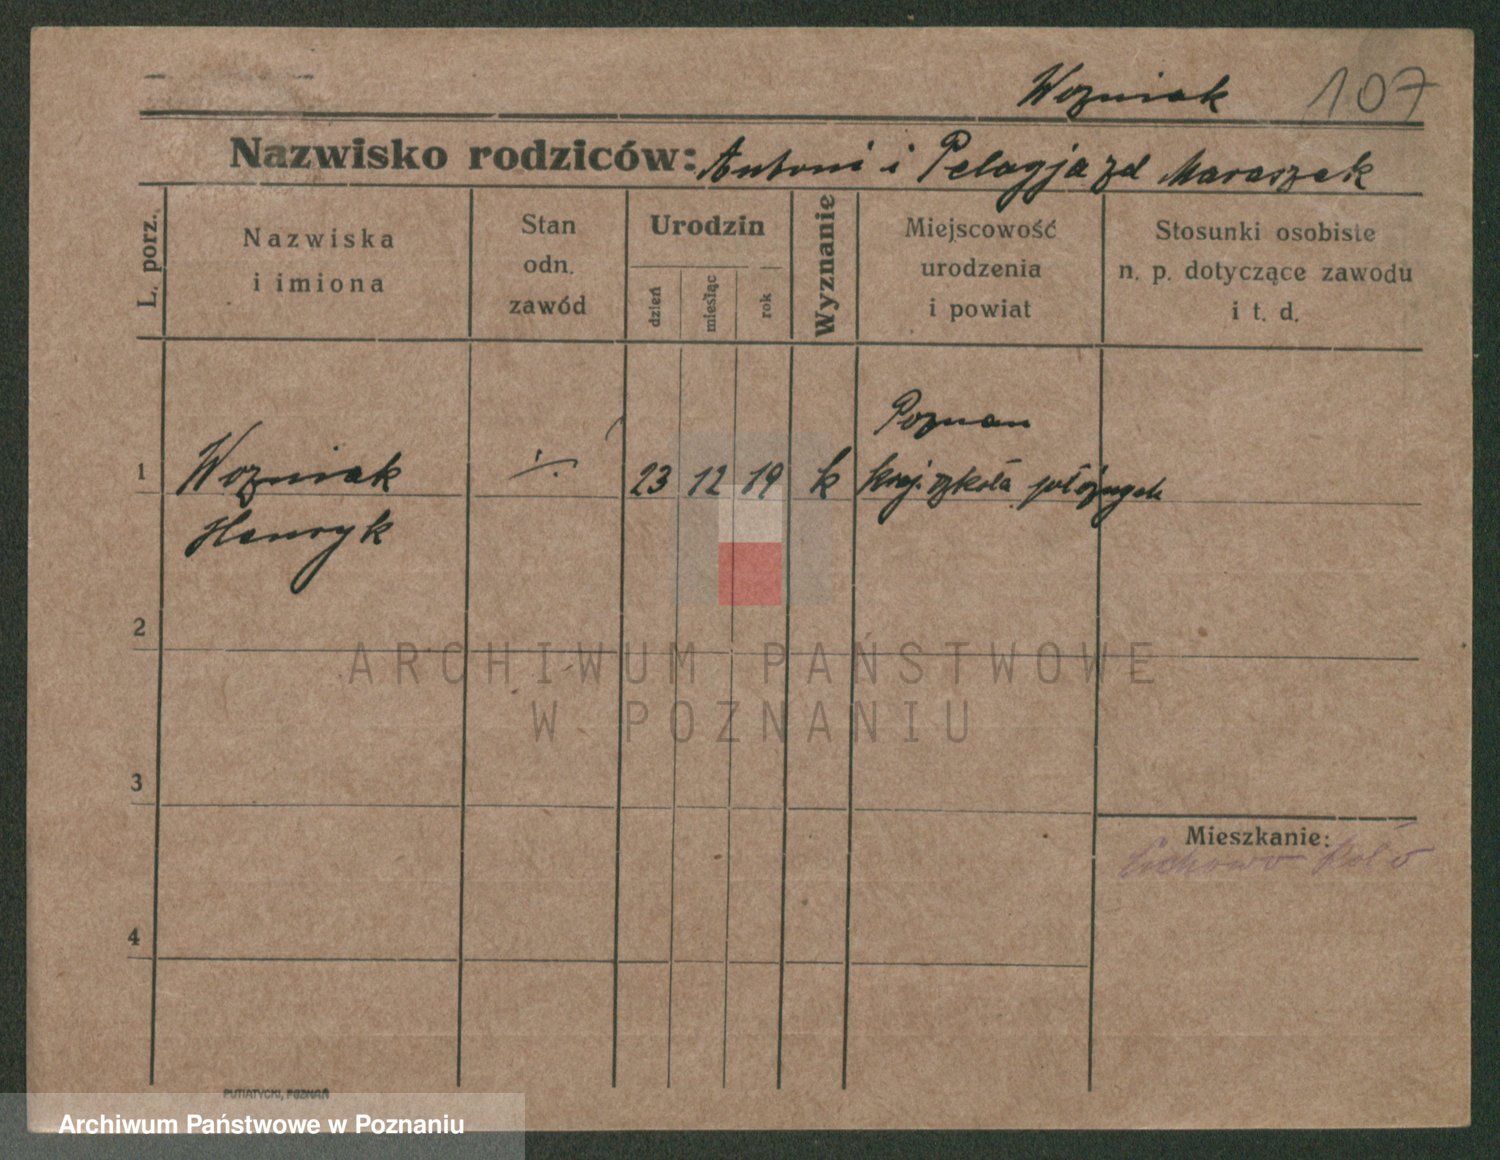 Wozniak 107
Nazwisko rodziców: Antoni i Pelagja zd Maraszek
L. porz.
Nazwiska
i imiona
Stan
odn.
zawód
Urodzin
dzień
miesiąc
rok
Wyznanie
Miejscowość
urodzenia
i powiat
Stosunki osobiste
n. p. dotyczące zawodu
i t. d.
Poznan
1 Wozniak ·/. 23 12 19 k kraj. szkoła położnych
Henryk
2
ARCHIWUM PAŃSTWOWE
W POZNANIU
3
Mieszkanie:
4
PUTIATYCKI, POZNAŃ
Archiwum Państwowe w Poznaniu